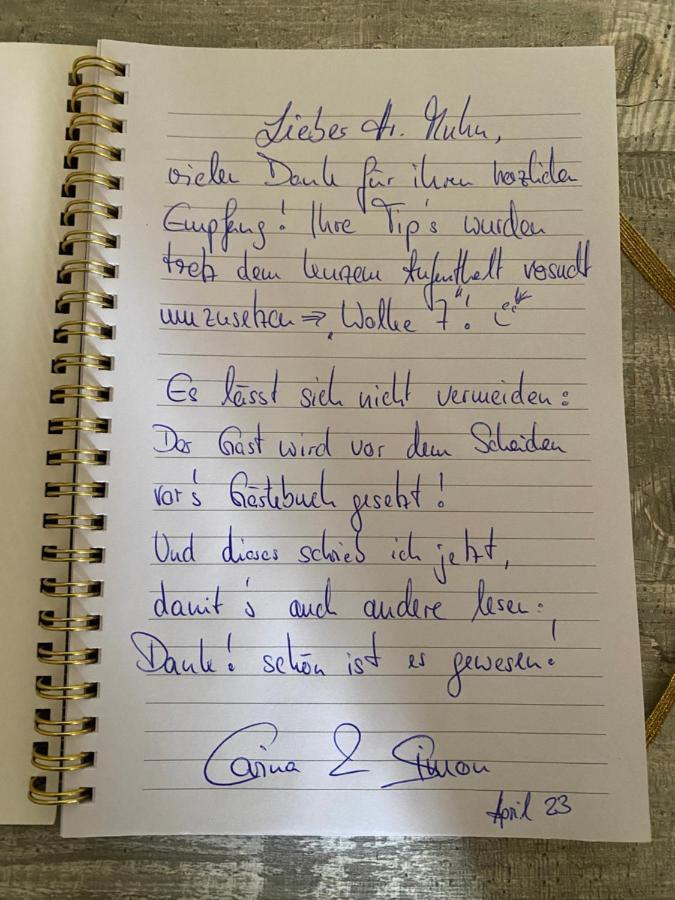 Lieber Hr. Kuhn,
vielen Dank für ihren herzlichen
Empfang! Ihre Tip's wurden
trotz dem kurzem Aufenthalt versucht
umzusetzen ⇒ „Wolke 7"!
Es lässt sich nicht vermeiden:
Der Gast wird vor dem Scheiden
vor's Gästebuch gesetzt!
Und dieses schrieb ich jetzt,
damit's auch andere lesen:
Danke! schön ist es gewesen!
Carina & Simon
April 23